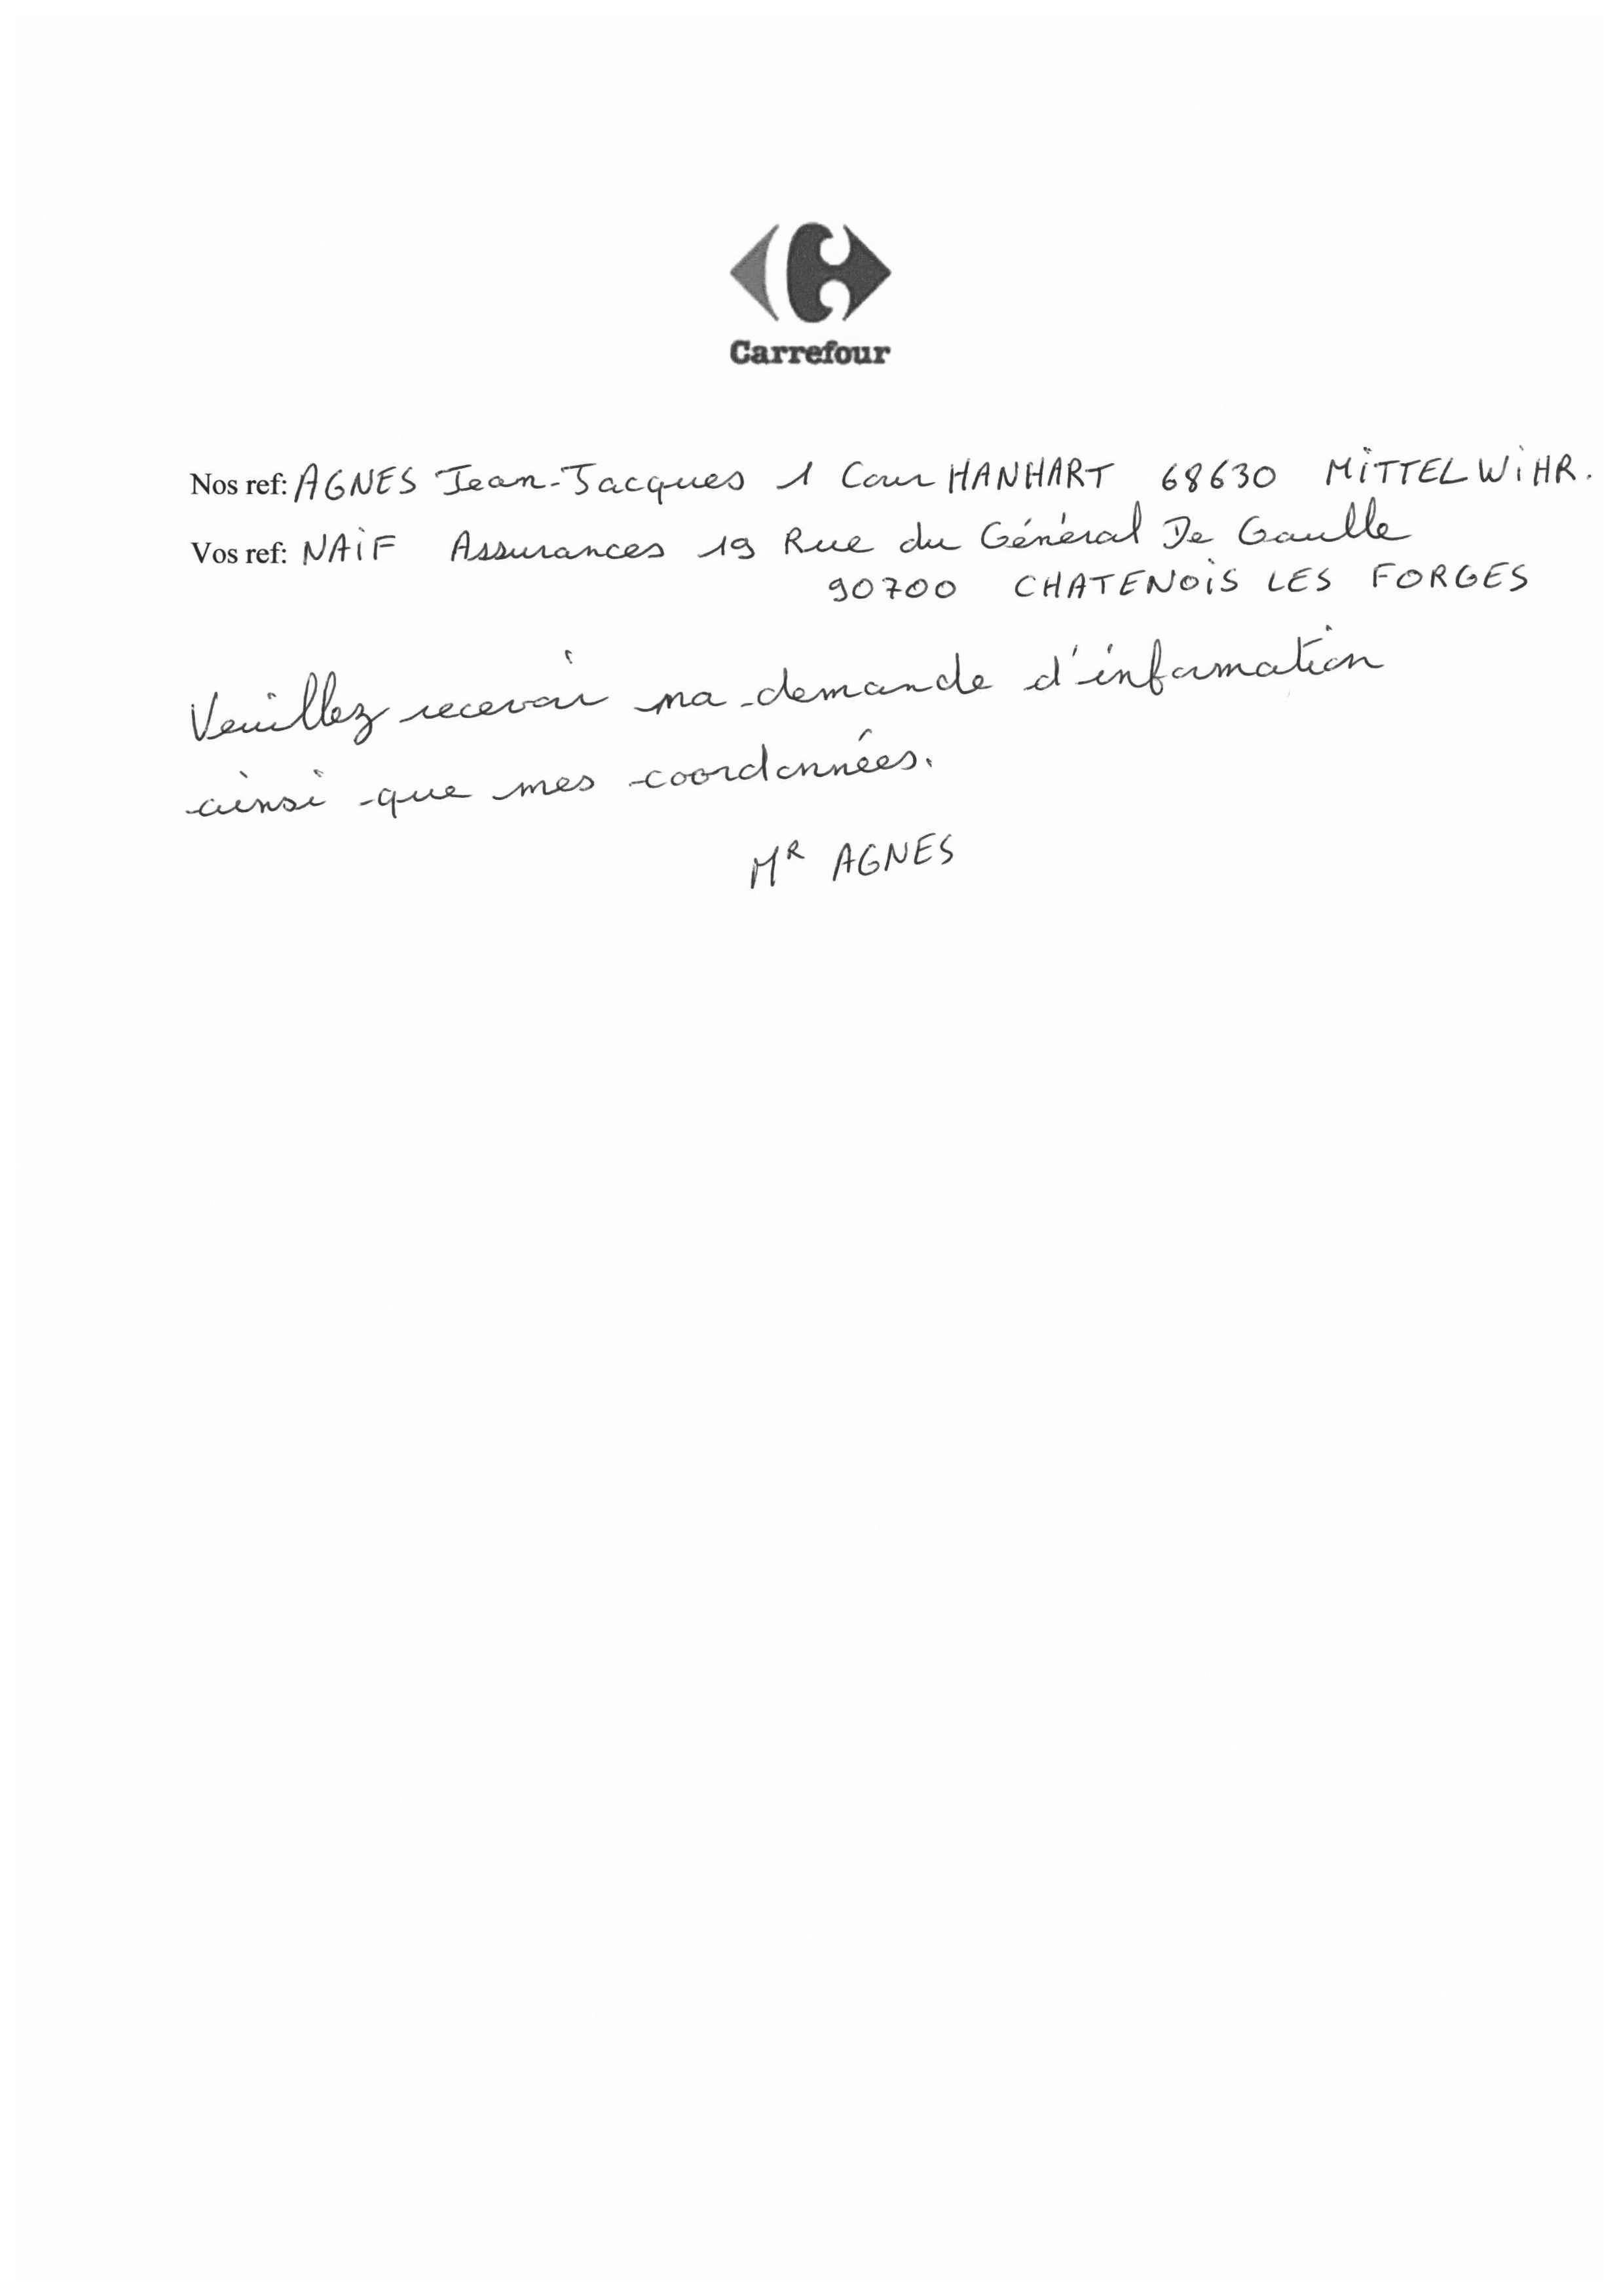 Carrefour
Nos ref: AGNES Jean-Jacques 1 Cour HANHART 68630 MITTELWIHR.
Vos ref: NAIF Assurances 19 Rue du Général De Gaulle
90700 CHATENOIS LES FORGES
Veuillez recevoir ma demande d'information
ainsi que mes coordonnées.
Mr AGNES